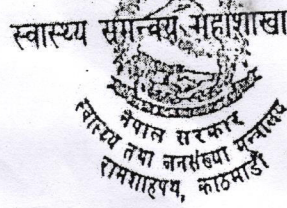 स्वास्थ्य समन्वय महाशाखा
नेपाल सरकार
स्वास्थ्य तथा जनसंख्या मन्त्रालय
रामशाहपथ, काठमाडौं